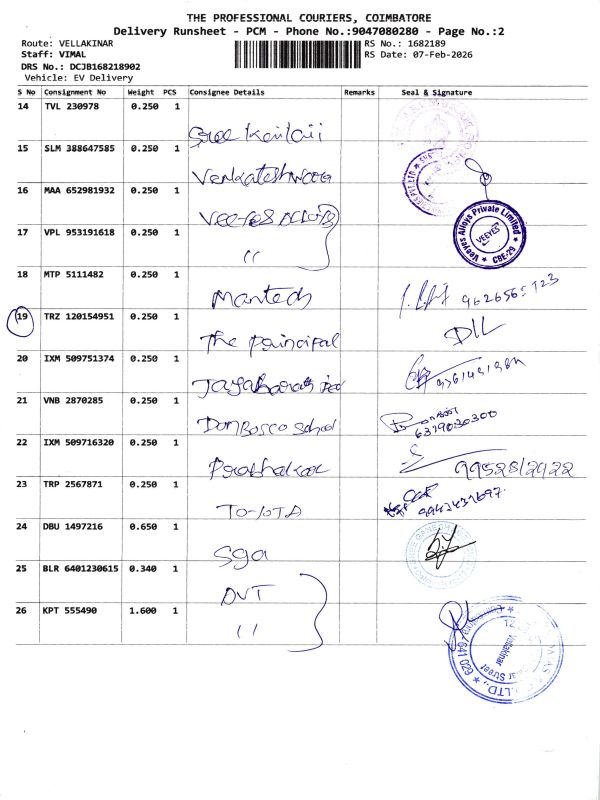 THE PROFESSIONAL COURIERS, COIMBATORE
Delivery Runsheet - PCM - Phone No.:9047080280 - Page No.:2
Route: VELLAKINAR RS No.: 1682189
Staff: VIMAL RS Date: 07-Feb-2026
DRS No.: DCJB168218902
Vehicle: EV Delivery
S No Consignment No Weight PCS Consignee Details Remarks Seal & Signature
14 TVL 230978 0.250 1
Sree
15 SLM 388647585 0.250 1
Venkateshwara
16 MAA 652981932 0.250 1
Veeyes Alloys Private Limited
VEEYES
CBE-29
17 VPL 953191618 0.250 1
"
18 MTP 5111482 0.250 1
Mantech
19 TRZ 120154951 0.250 1
The Principal
20 IXM 509751374 0.250 1
21 VNB 2870285 0.250 1
DonBosco School
6379030300
22 IXM 509716320 0.250 1
Prabhakar
23 TRP 2567871 0.250 1
24 DBU 1497216 0.650 1
Sga
25 BLR 6401230615 0.340 1
DVT
26 KPT 555490 1.600 1
"
Vellakinar
Street
641 029